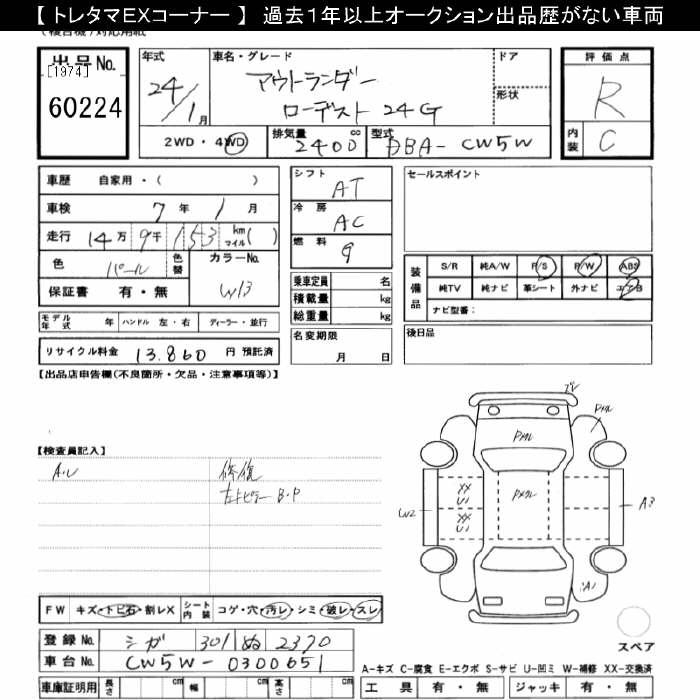 【 トレタマEXコーナー 】 過去1年以上オークション出品歴がない車両
出品No.
[1974]
60224
年式
24/1月
車名・グレード
アウトランダー
ローデスト 24G
ドア
形状
評価点
R
内装 C
2WD・4WD
排気量 2400 cc
型式 DBA-CW5W
車歴 自家用・( )
車検 7年 1月
走行 14万 9千 153 km マイル ( )
色 パール 色替
カラーNo. W13
保証書 有・無
シフト AT
冷房 AC
燃料 g
乗車定員 名
積載量 kg
総重量 kg
名変期限 月 日
セールスポイント
装備品
S/R 純A/W P/S P/W ABS
純TV 純ナビ 革シート 外ナビ エアB
ナビ型番:
後日品
モデル年式 年 ハンドル 左・右 ディーラー・並行
リサイクル料金 13.860 円 預託済
【出品店申告欄(不良箇所・欠品・注意事項等)】
【検査員記入】
A.U 修復
左上ピラー B.P
Pメクレ
Pメクレ
Pメクレ
XX
U1
XX
U1
W2
A3
A1
スペア
FW キズ・トビ石・割レX シート内装 コゲ・穴・汚レ・シミ・破レ・スレ
登録No. シガ 301 ぬ 2370
車台No. CW5W-0300651
A-キズ C-腐食 E-エクボ S-サビ U-凹ミ W-補修 XX-交換済
車庫証明用 長さ cm 幅 cm 高さ cm
工具 有・無 ジャッキ 有・無